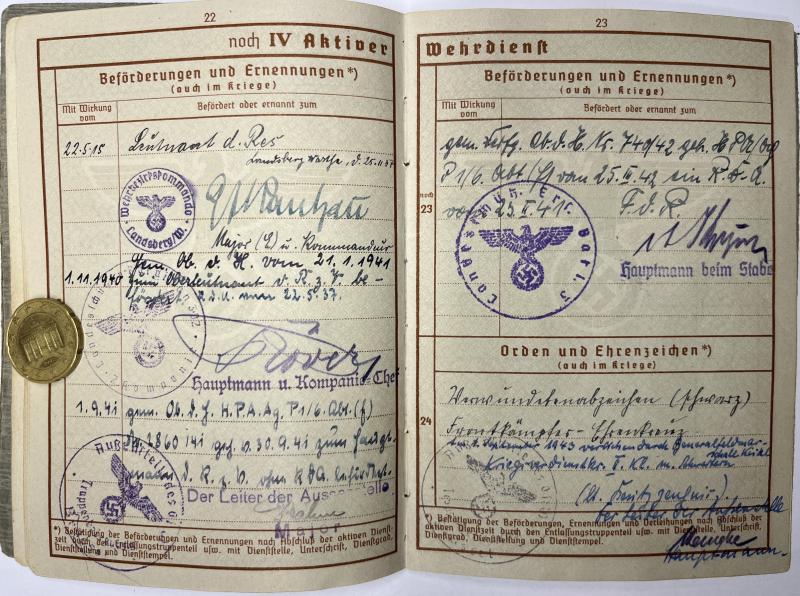 22
noch IV Aktiver
Beförderungen und Ernennungen*)
(auch im Kriege)
Mit Wirkung vom
Befördert oder ernannt zum
22.5.15 Leutnant d. Res
Landsberg Warthe, d. 25.11.37
Wehrbezirkskommando
Landsberg/W.
Major (E) u. Kommandeur
Gem. Ob. d. H. vom 21.1.1941
1.11.1940 zum Oberleutnant d. R. z. V. be-
fördert. R.D.A. vom 22.5.37.
Hauptmann u. Kompanie-Chef
1.9.41 gem. Ob. d. H. H.P.A. Ag. P1/6. Abt. (f)
2860/41 geh. v. 30.9.41 zum Haupt-
mann d. R. z. V. ohne RDA befördert.
Der Leiter der Aussenstelle
Major
*) Bestätigung der Beförderungen, Ernennungen nach Abschluß der aktiven Dienst-
zeit durch den Entlassungstruppenteil usw. mit Dienststelle, Unterschrift, Dienstgrad,
Dienststellung und Dienststempel.
23
Wehrdienst
Beförderungen und Ernennungen*)
(auch im Kriege)
Mit Wirkung vom
Befördert oder ernannt zum
gem. Verfg. Ob. d. H. Nr. 740/42 geh. H PA/Ag
P 1/6. Abt. vom 25.II.42 ein R.D.A.
noch
23
vom 25.II.41 F.d.R.
Landesschütz. Ers. Batl. 3
Hauptmann beim Stabe
Orden und Ehrenzeichen*)
(auch im Kriege)
Verwundetenabzeichen (schwarz)
24
Frontkämpfer-Ehrenkreuz
September 1943 verliehen durch Generalfeldmar-
schall
Kriegsverdienstkr. II. Kl. m. Schwertern
Der Leiter der Außenstelle
*) Bestätigung der Beförderungen, Ernennungen und Verleihungen nach Abschluß der
aktiven Dienstzeit durch den Entlassungstruppenteil usw. mit Dienststelle, Unterschrift,
Dienstgrad, Dienststellung und Dienststempel.
Hauptmann.